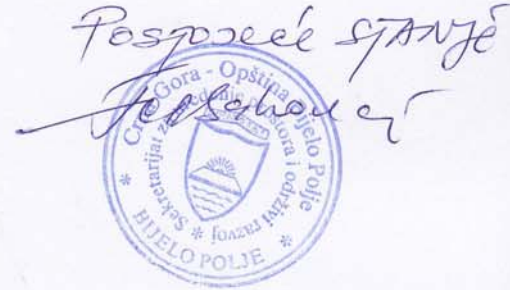 Postojeće STANJE
Crna Gora - Opština Bijelo Polje
Sekretarijat za uređenje prostora i održivi razvoj
* BIJELO POLJE *